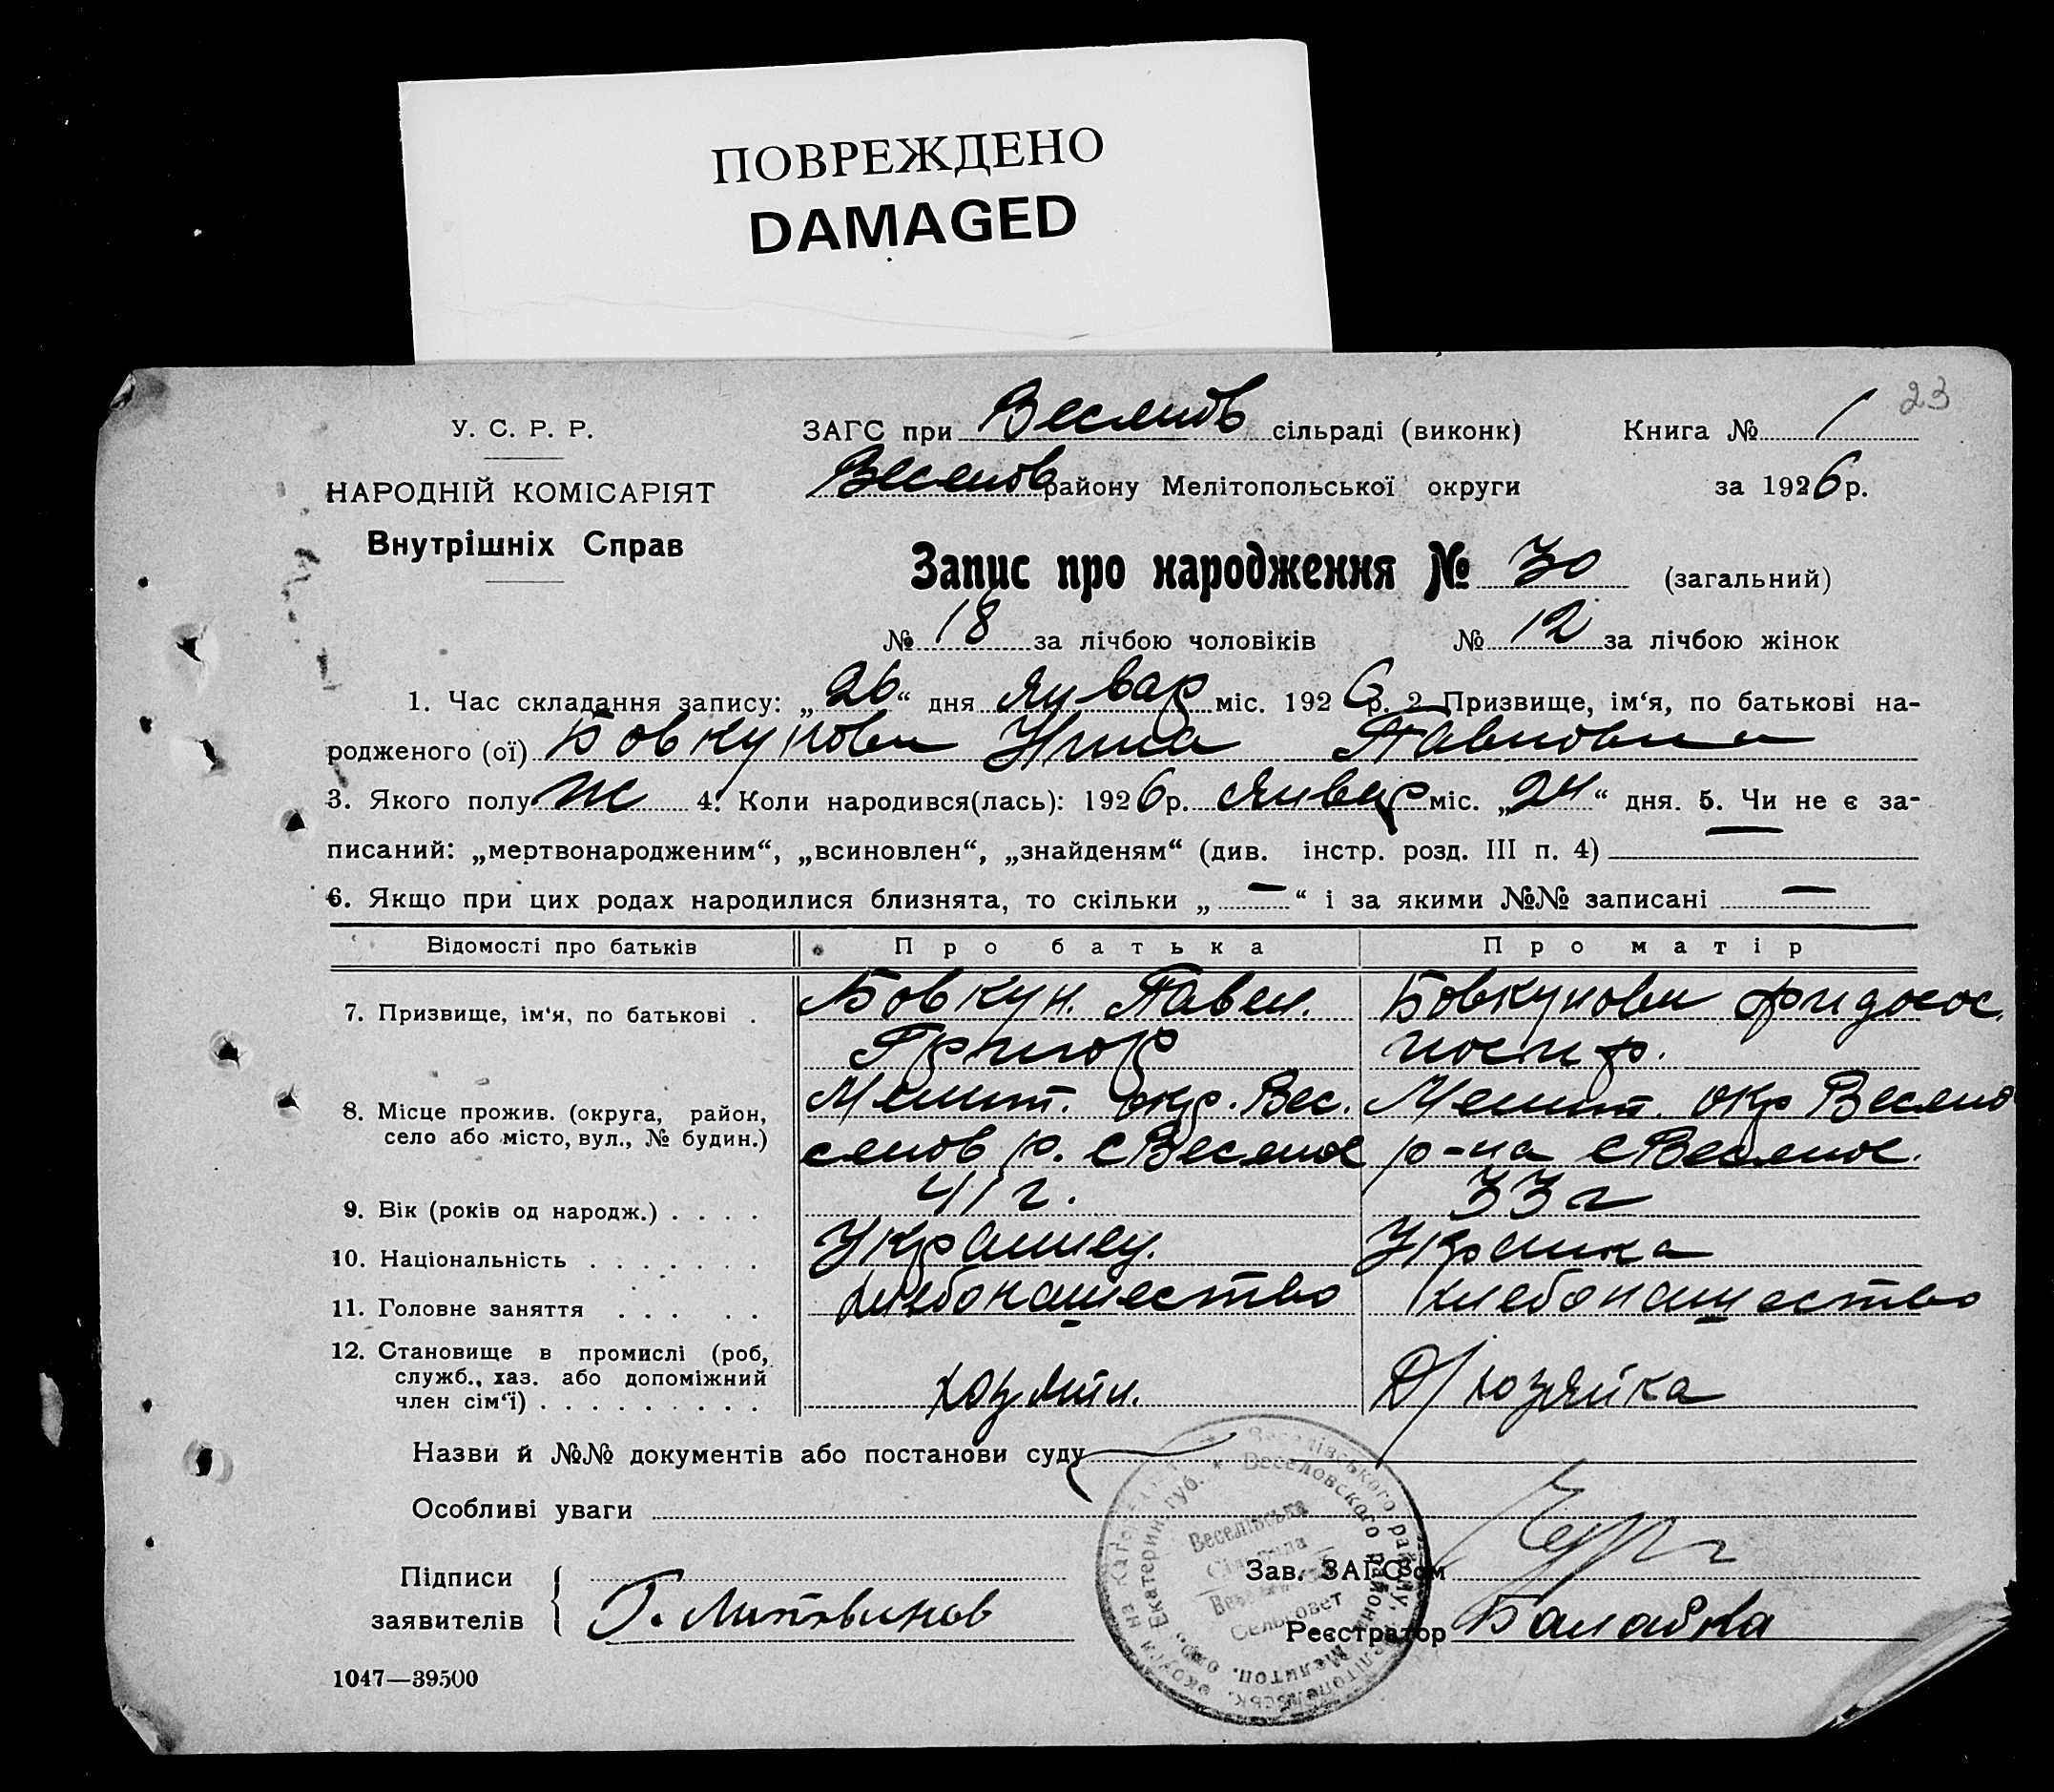 ПОВРЕЖДЕНО
DAMAGED
23
У. С. Р. Р.
НАРОДНІЙ КОМІСАРІЯТ
Внутрішніх Справ
ЗАГС при Веселов сільраді (виконк) Книга № 1
Веселов району Мелітопольської округи за 1926 р.
Запис про народження № 30 (загальний)
№ 18 за лічбою чоловіків № 12 за лічбою жінок
1. Час складання запису: „26“ дня Январ міс. 1926 р. 2. Призвище, ім‘я, по батькові на-
родженого (ої) Бовкунова Нина Павловна
3. Якого полу ж 4. Коли народився(лась): 1926 р. Январ міс. „24“ дня. 5. Чи не є за-
писаний: „мертвонародженим“, „всиновлен“, „знайденям“ (див. інстр. розд. III п. 4) —
6. Якщо при цих родах народилися близнята, то скільки „—“ і за якими №№ записані —
Відомості про батьків Про батька Про матір
7. Призвище, ім‘я, по батькові . Бовкун. Павел. Бовкунова
Григор
8. Місце прожив. (округа, район, Мелит. окр. Вес. Мелит. окр Весело
село або місто, вул., № будин.) селов р. с Веселое р-на с Веселое.
9. Вік (років од народж.) . . . . 41 г. 33 г
10. Національність . . . . . . . Украинец. Украинка
11. Головне заняття . . . . . хлебопашество хлебопашество
12. Становище в промислі (роб,
служб., хаз. або допоміжний
член сім‘ї) . . . . . . . . . хозяин. Д/хозяйка
Назви й №№ документів або постанови суду
Особливі уваги
Підписи Зав. ЗАГС‘ом
заявителів Г. Литвинов Реєстратор Балабка
Веселівського району, Мелітопільськ. округи на Катериносл.
Веселовского района, Мелитоп. окр., Екатерин. губ.
Веселівська
Сільрада
Сельсовет
1047—39500